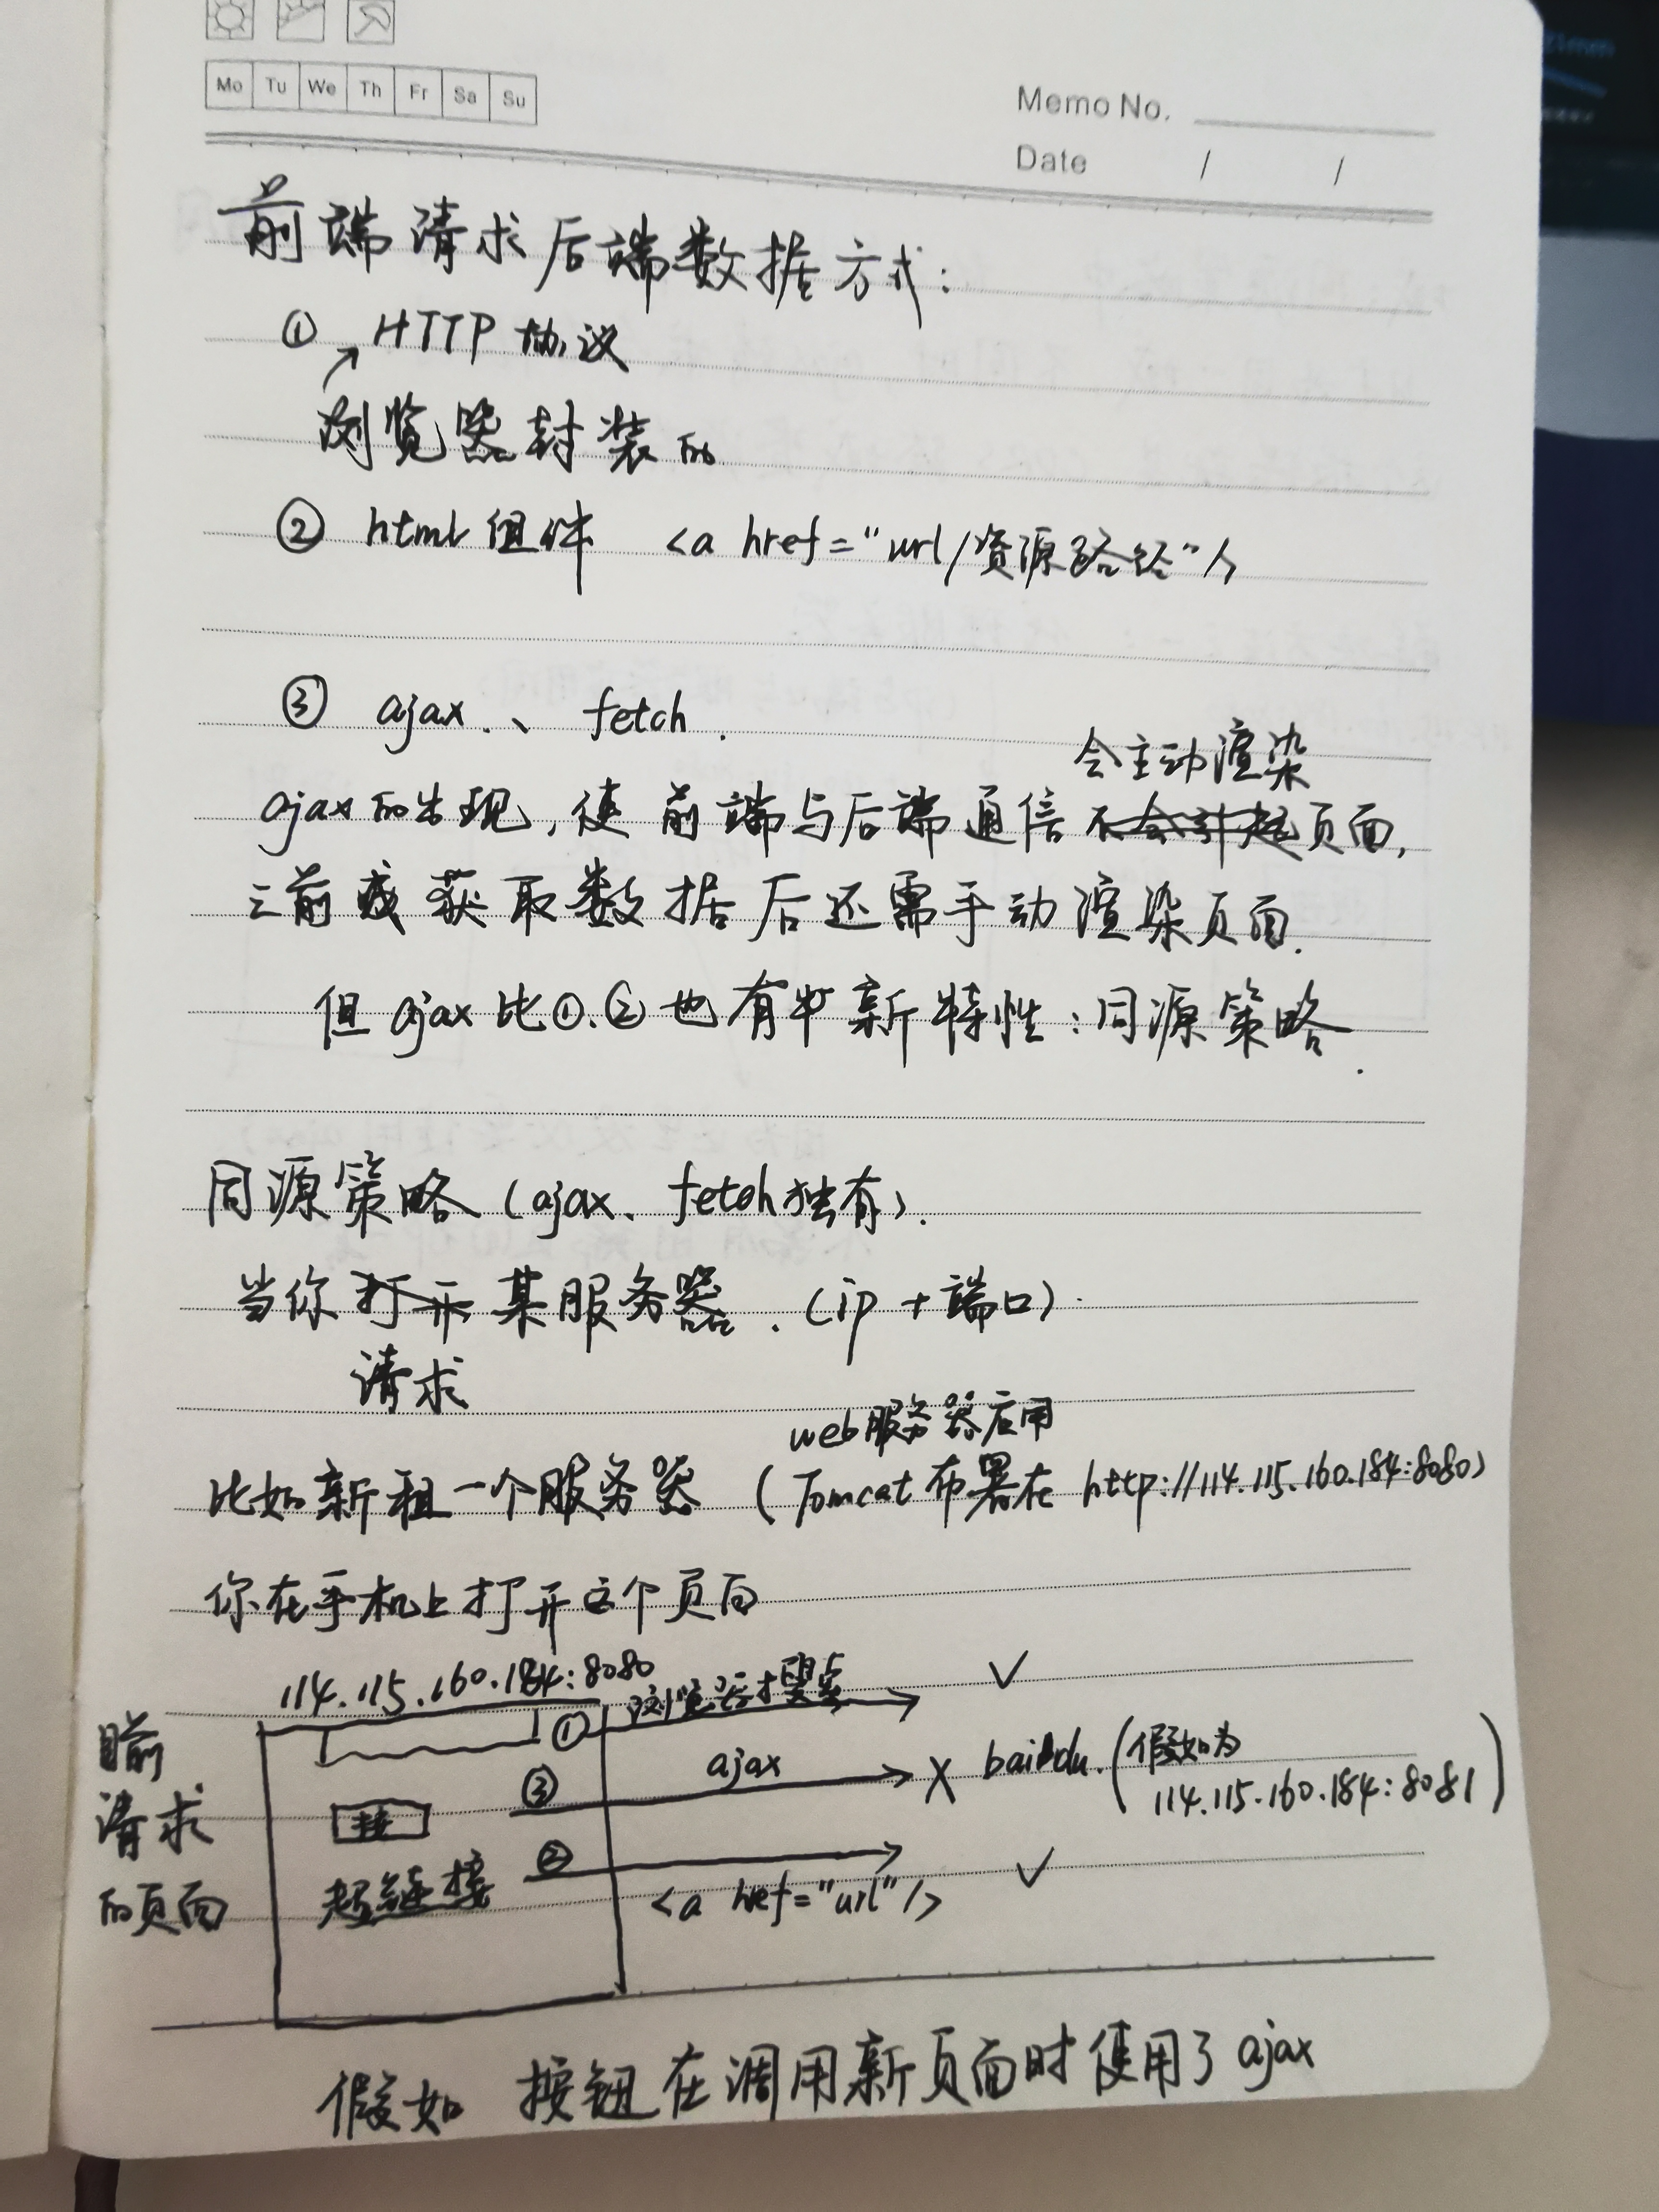 Mo Tu We Th Fr Sa Su
Memo No.
Date / /
前端请求后端数据方式:
① HTTP 协议
浏览器封装的
② html 组件 <a href="url/资源路径"/>
③ ajax、fetch.
会主动渲染
ajax的出现,使 前端与后端通信 不会引起页面,
之前或获取数据后还需手动渲染页面.
但 ajax 比①、②也有 新特性:同源策略.
同源策略 (ajax、fetch独有).
当你 打开 某服务器.(ip + 端口)
请求
web服务器应用
比如新租一个服务器 (Tomcat 布署在 http://114.115.160.184:8080)
你在手机上打开这个页面
114.115.160.184:8080
① 浏览器搜索 ✓
目前
请求
的页面
③ ajax ✗ baidu.(假如为
114.115.160.184:8081)
超链接
② <a href="url"/> ✓
假如 按钮在调用新页面时使用了ajax